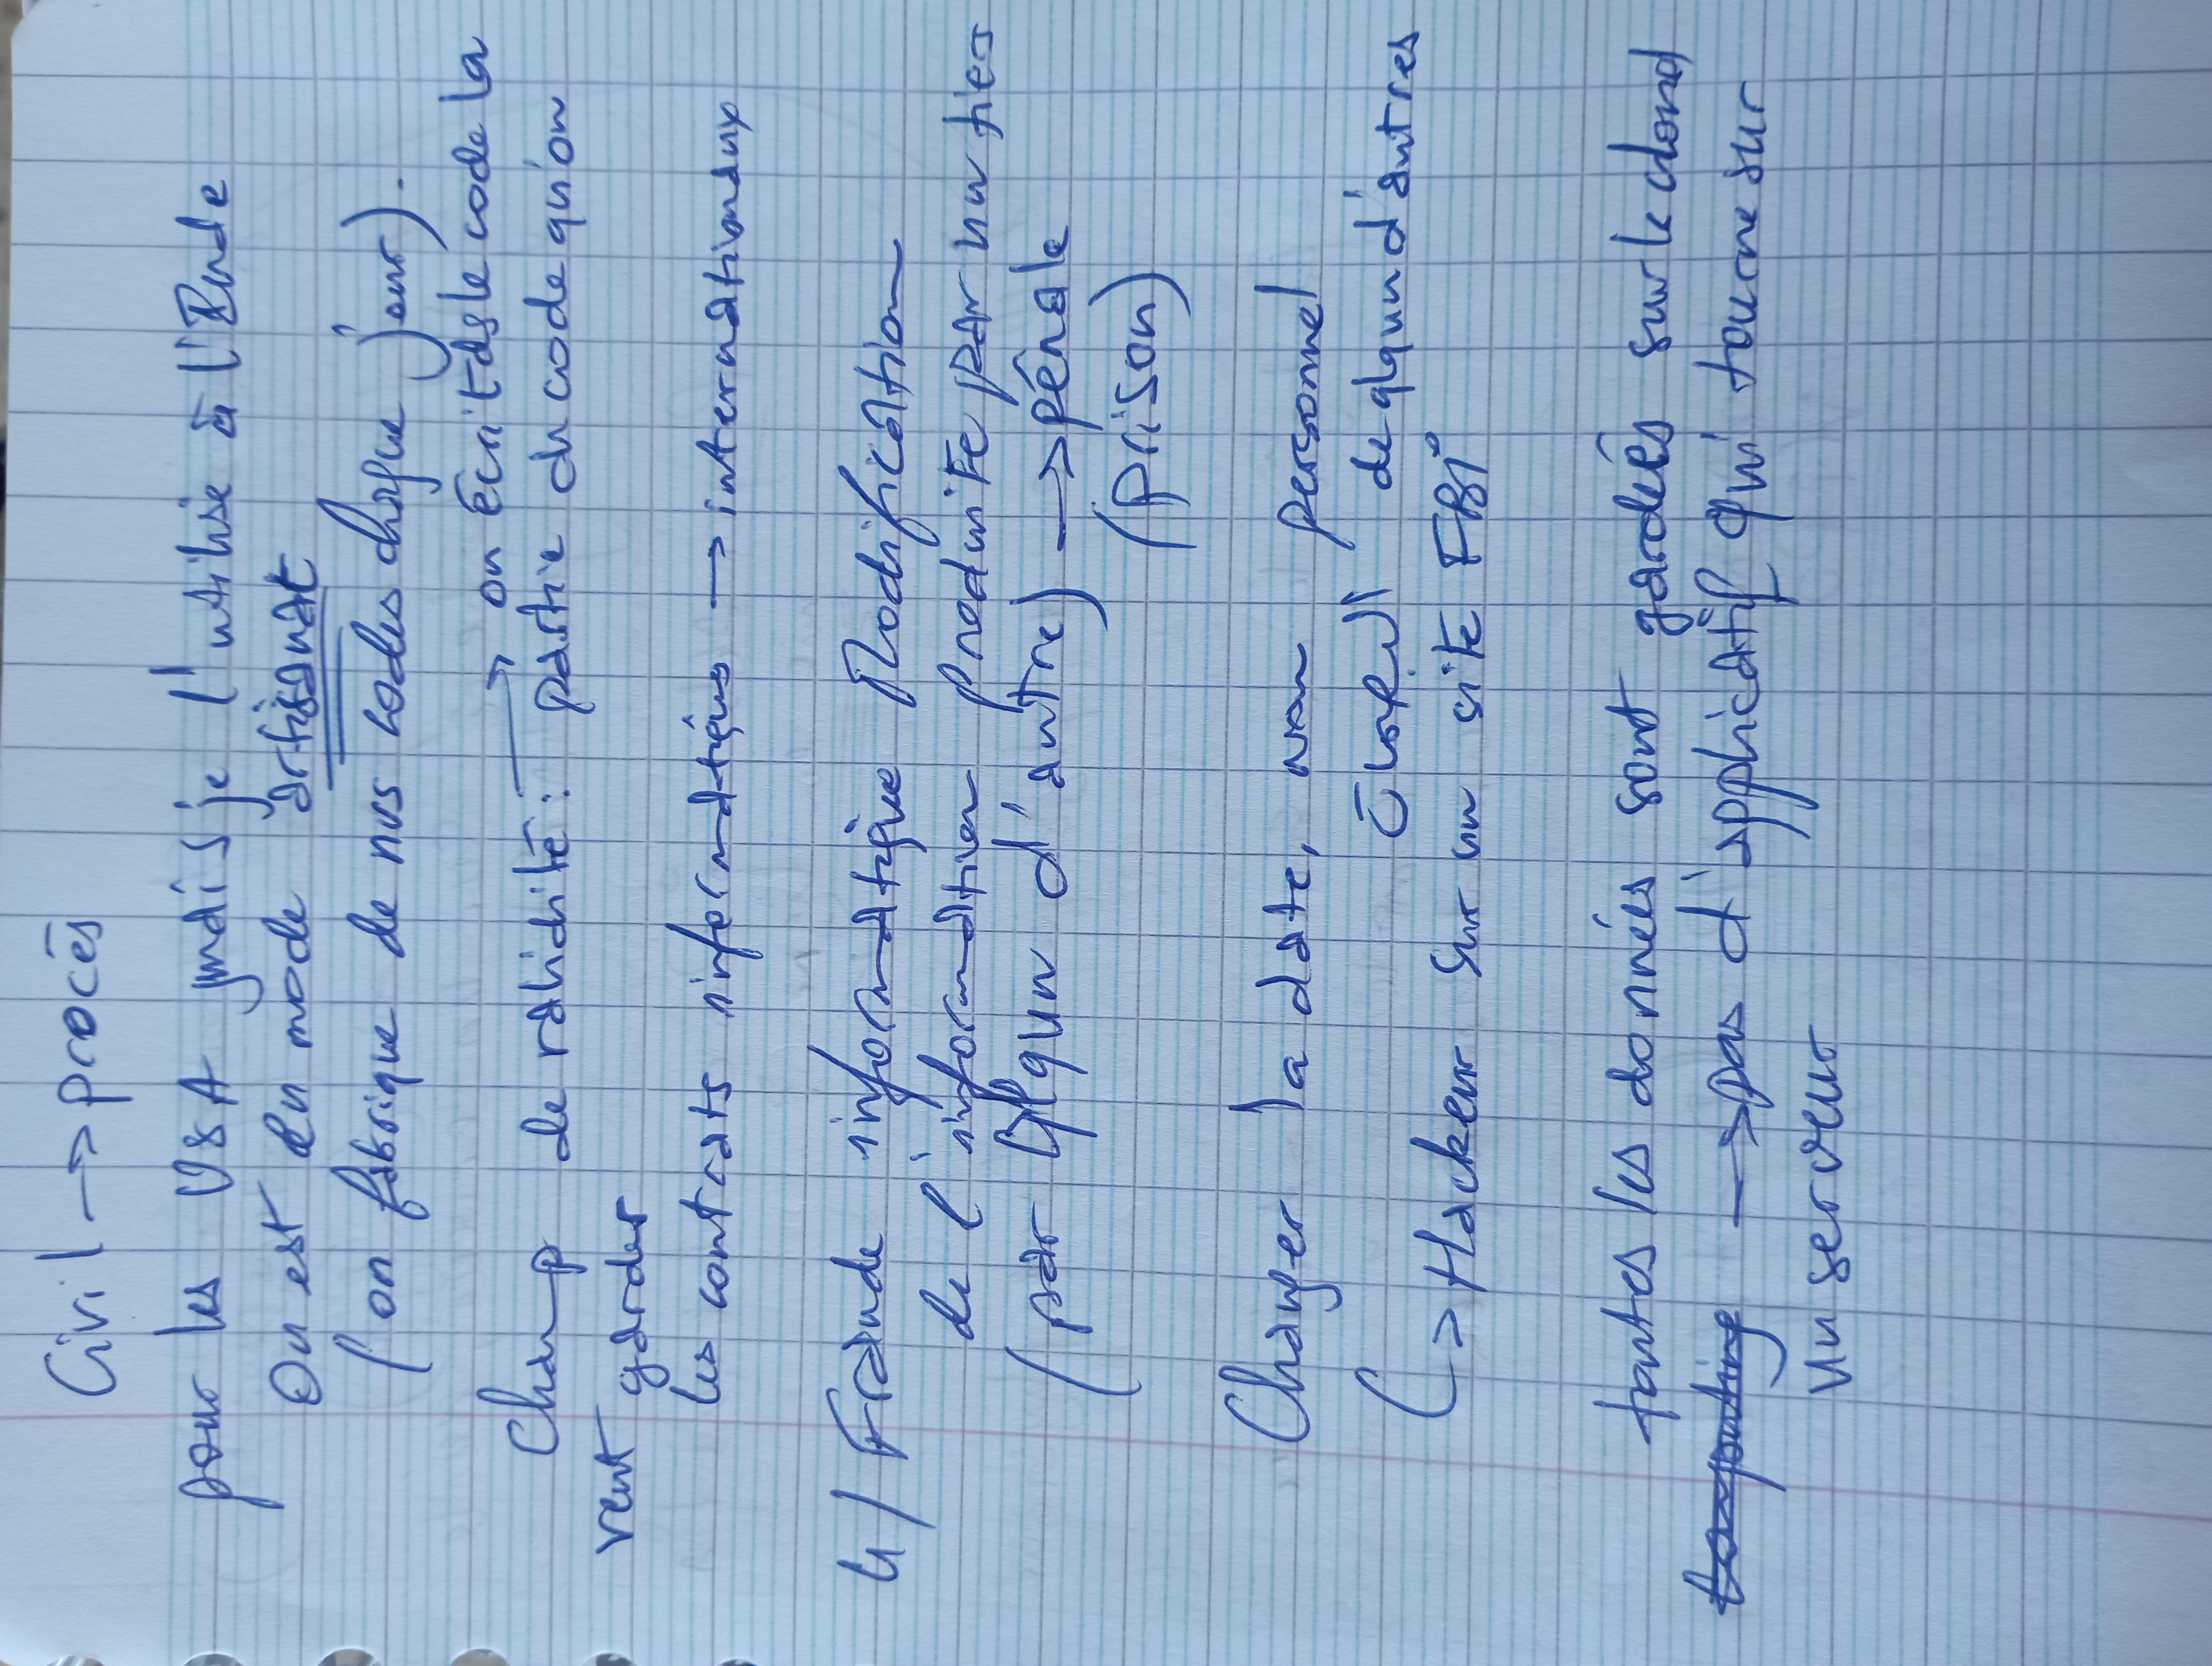 Civil → procès
pour les USA mais je l'utilise à l'Inde
On est en mode artisanat
(on fabrique de nos codes chaque jour).
→ on écrit ds le code la
Champ de validité : partie du code qu'on
veut garder
les contrats informatiques → internationaux
4/ Fraude informatique Modification
de l'information produite par un tiers
(par qlqun d'autre) → pénale
(prison)
Changer la date, nom personnel
de qlqun d'autres
↳ Hackeur sur un site FBI
toutes les données sont gardées sur le cloud
computing → pas d'applicatif qui tourne sur
un serveur